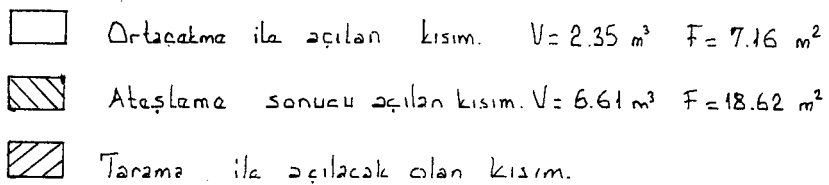 Ortaçatma ile açılan kısım. V= 2.35 m³ F= 7.16 m²
Ateşleme sonucu açılan kısım. V= 6.61 m³ F= 18.62 m²
Tarama ile açılacak olan kısım.